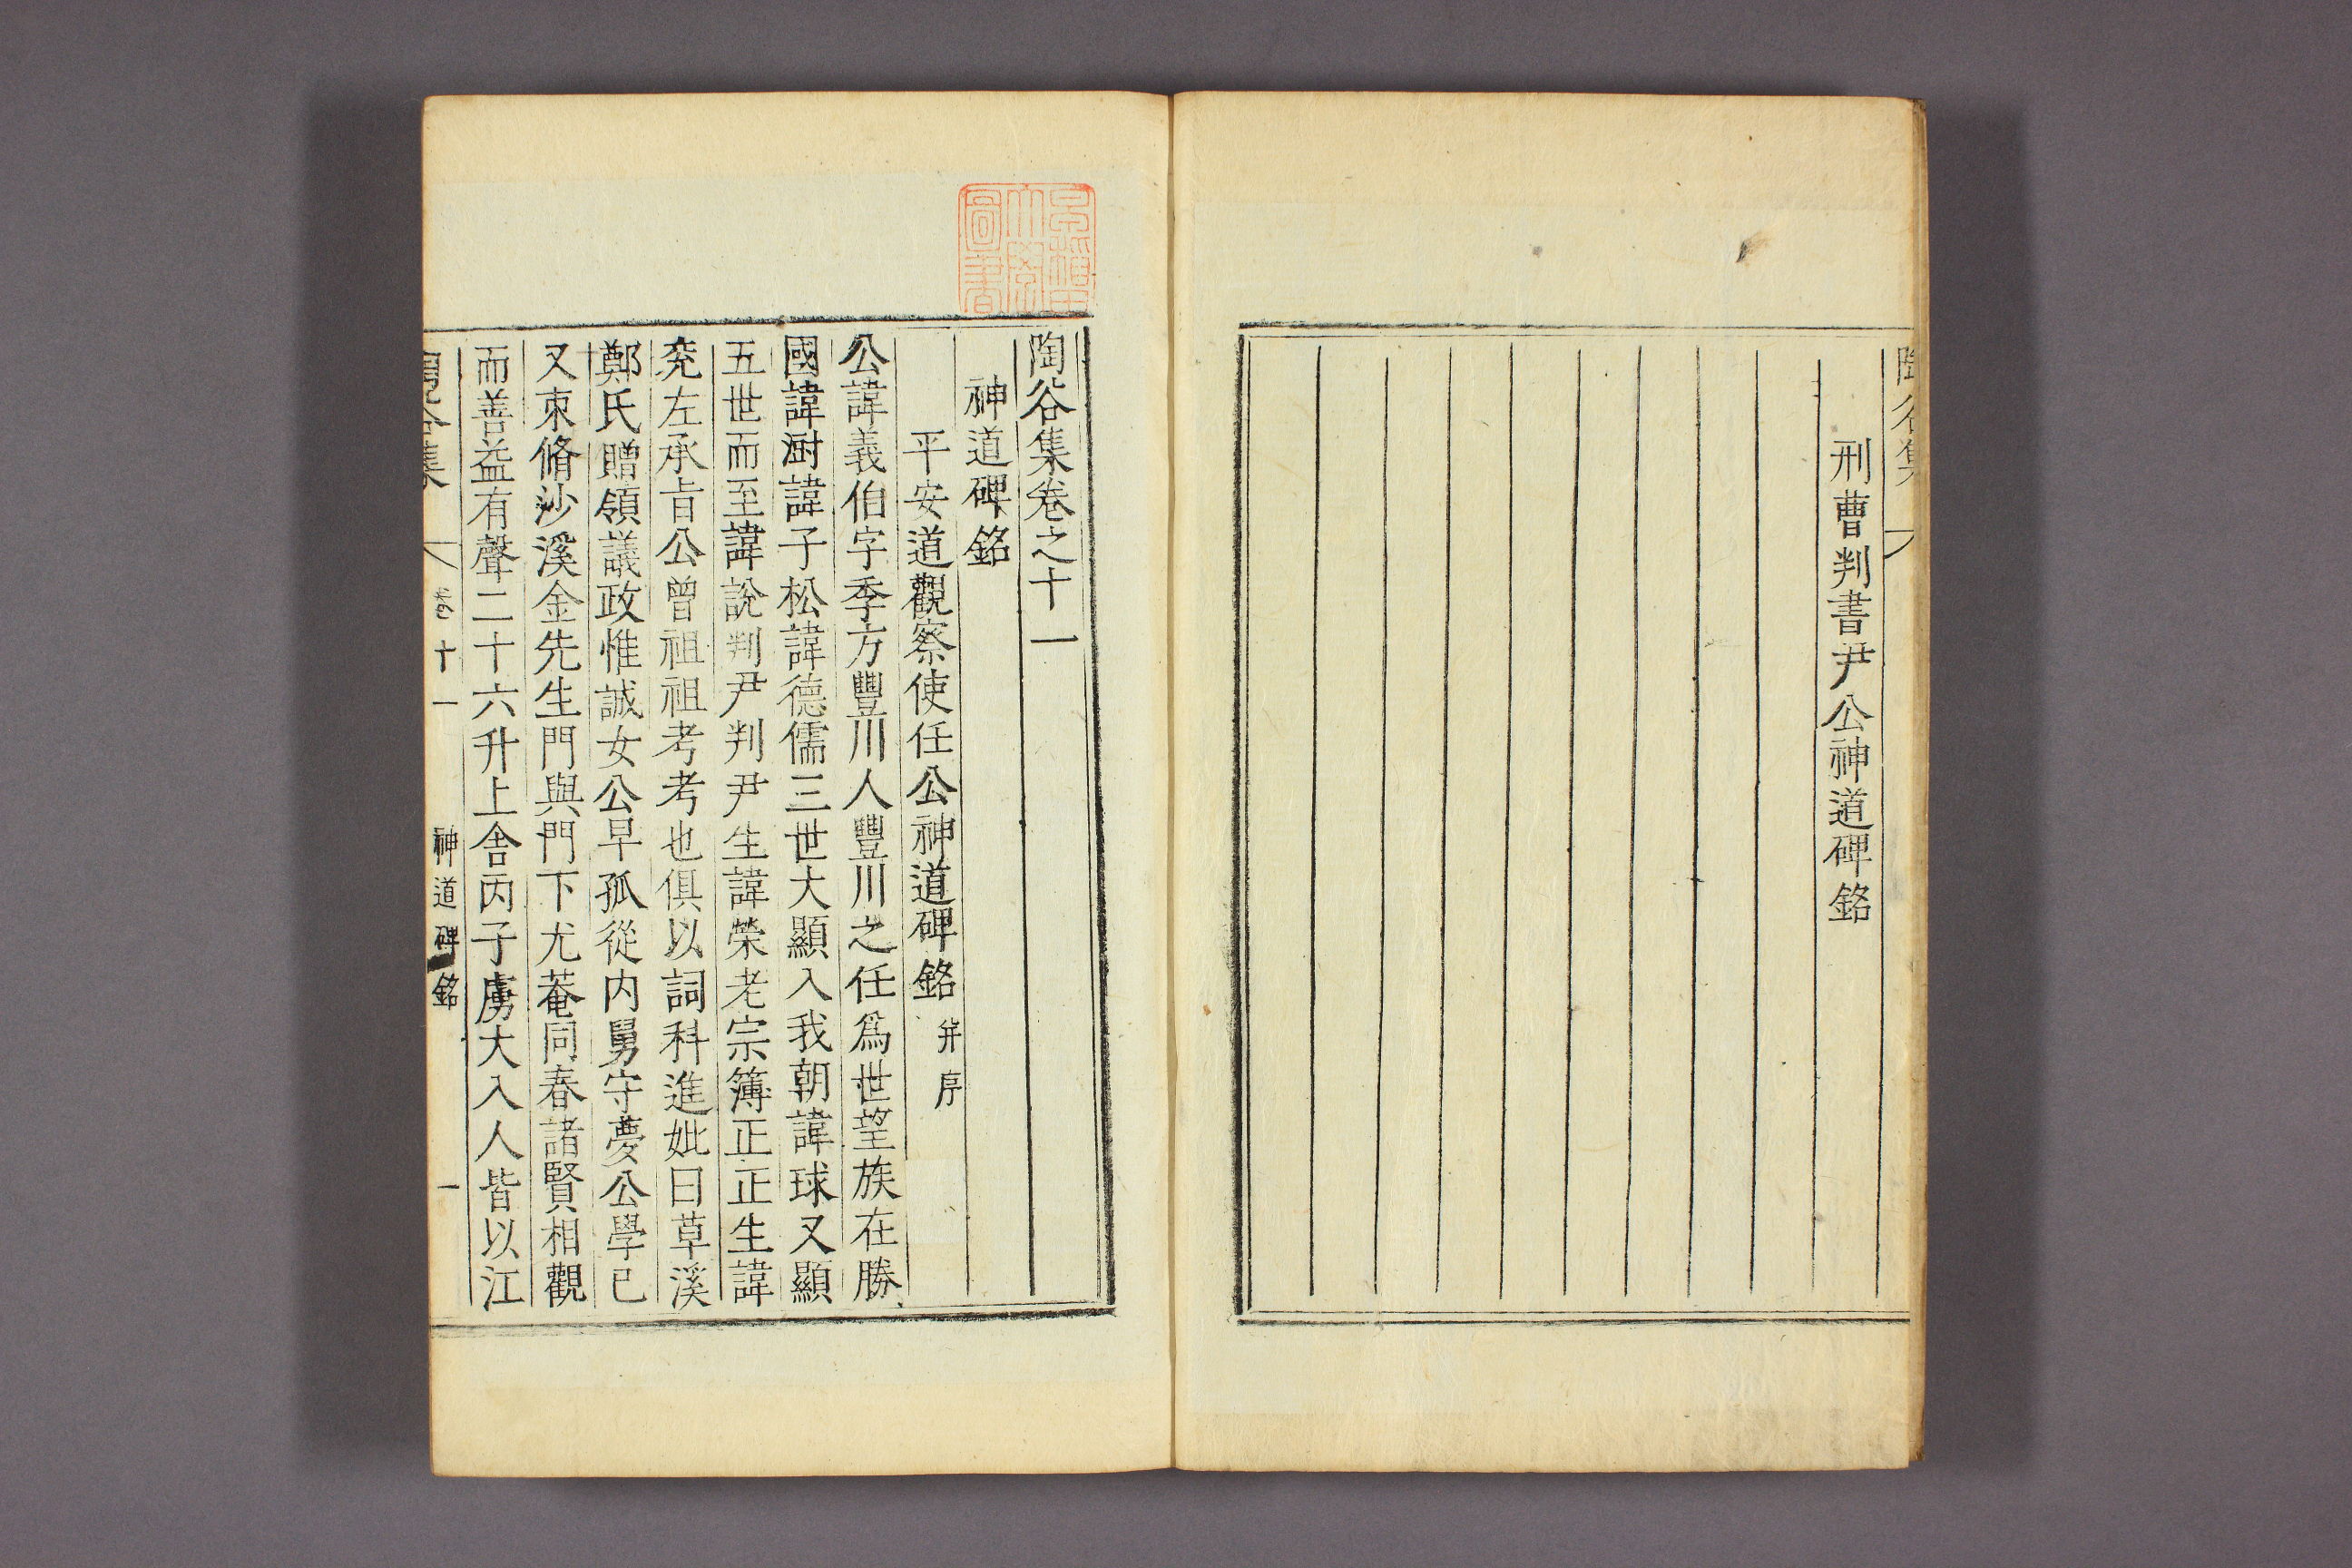 陶谷集
刑曹判書尹公神道碑銘
早稲田
大學
圖書
陶谷集卷之十一
神道碑銘
平安道觀察使任公神道碑銘 幷序
公諱義伯字季方豐川人豐川之任爲世望族在勝
國諱澍諱子松諱德儒三世大顯入我朝諱球又顯
五世而至諱說判尹判尹生諱榮老宗簿正正生諱
兗左承旨公曾祖祖考考也俱以詞科進妣曰草溪
鄭氏贈領議政惟誠女公早孤從内舅守夢公學已
又束脩沙溪金先生門與門下尤菴同春諸賢相觀
而善益有聲二十六升上舍丙子虜大入人皆以江
陶谷集 卷十一 神道碑銘 一